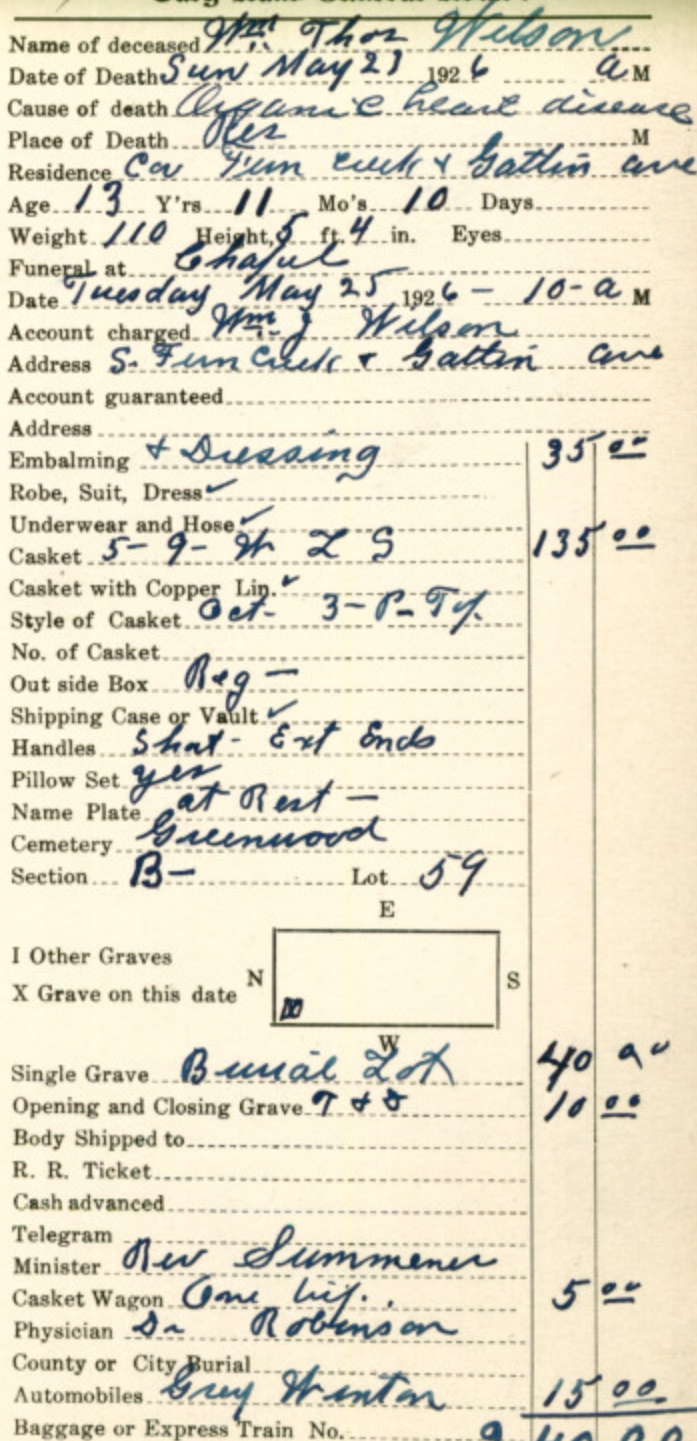 Name of deceased Wm. Thos Wilson
Date of Death Sun May 23 1926 a M
Cause of death Organic heart disease
Place of Death Res M
Residence Cor Fern creek & Gatlin ave
Age 13 Y'rs 11 Mo's 10 Days
Weight 110 Height 5 ft. 4 in. Eyes
Funeral at Chapel
Date Tuesday May 25 1926 - 10 - a M
Account charged Wm. J Wilson
Address S. Fern Creek & Gatlin ave
Account guaranteed
Address
Embalming & Dressing 35 00
Robe, Suit, Dress ✓
Underwear and Hose ✓
Casket 5 - 9 - W L S 135 00
Casket with Copper Lin. ✓
Style of Casket Oct - 3 - P - Tf.
No. of Casket
Out side Box Reg —
Shipping Case or Vault ✓
Handles Shat - Ext Ends
Pillow Set yes
Name Plate at Rest —
Cemetery Greenwood
Section B — Lot 59
E
I Other Graves
N S
X Grave on this date
W
Single Grave Burial Lot 40 00
Opening and Closing Grave T & S 10 00
Body Shipped to
R. R. Ticket
Cash advanced
Telegram
Minister Rev Summener
Casket Wagon One 5 00
Physician Dr Robinson
County or City Burial
Automobiles Grey Winton 15 00
Baggage or Express Train No. 240 00